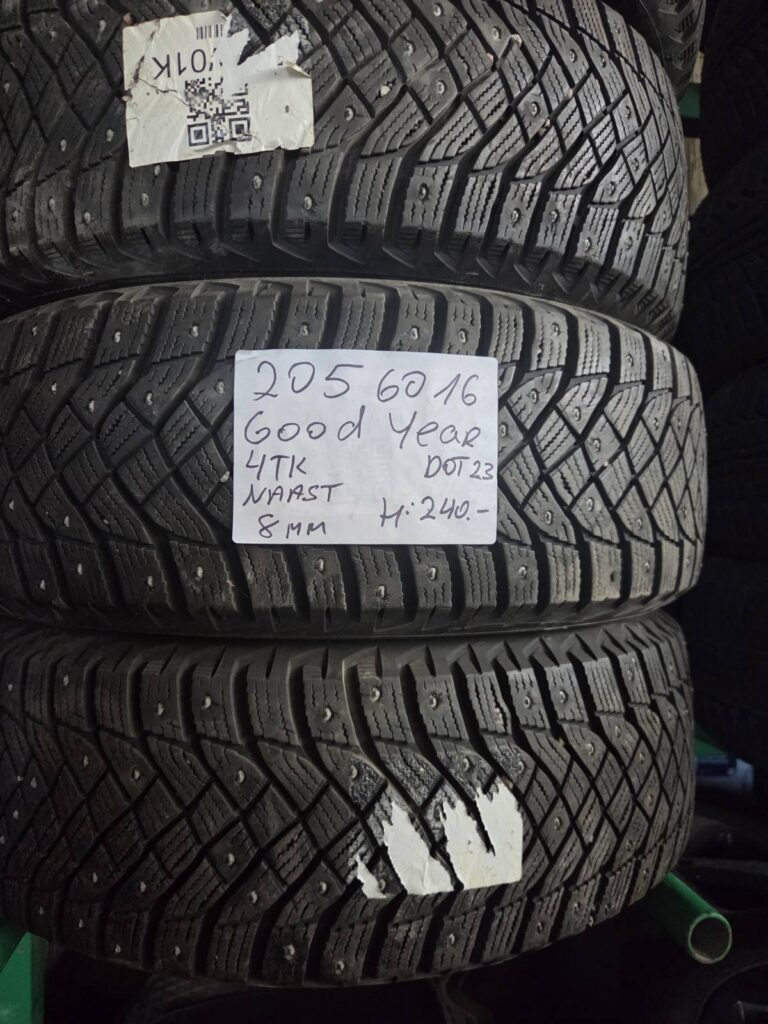 Y01K
205 60 16
Good Year
4TK DOT 23
NAAST
8 MM H: 240.-